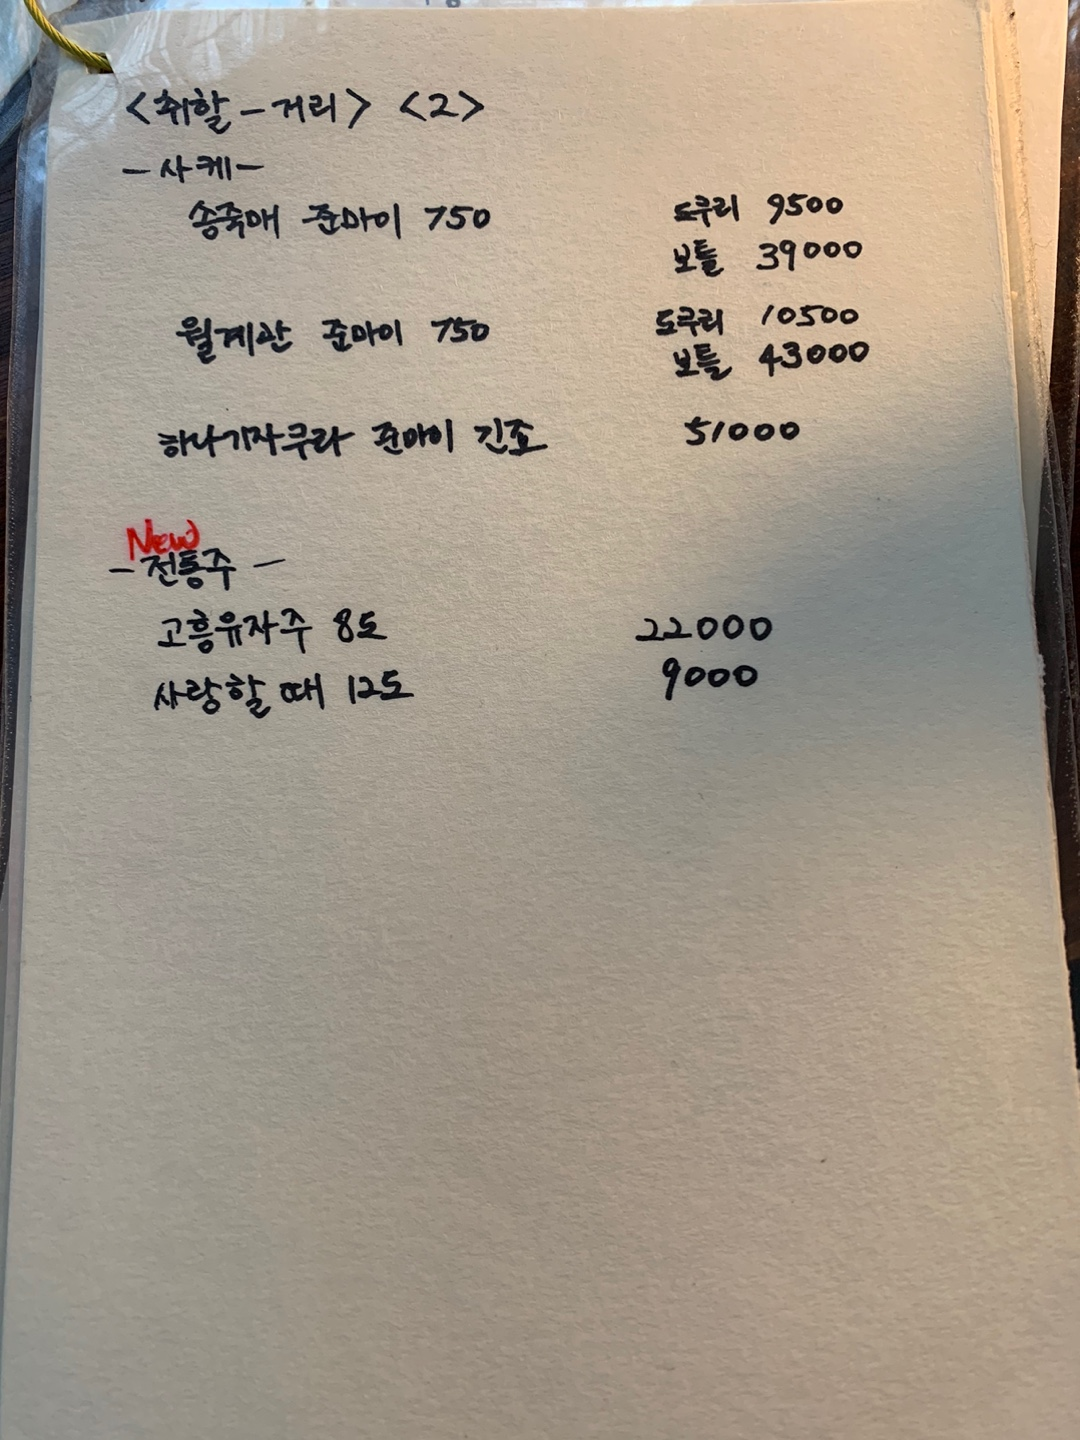 <취할-거리> <2>
-사케-
송죽매 준마이 750 도쿠리 9500
보틀 39000
월계관 준마이 750 도쿠리 10500
보틀 43000
하나기자쿠라 준마이 긴죠 51000
New
-전통주-
고흥유자주 8도 22000
사랑할 때 12도 9000